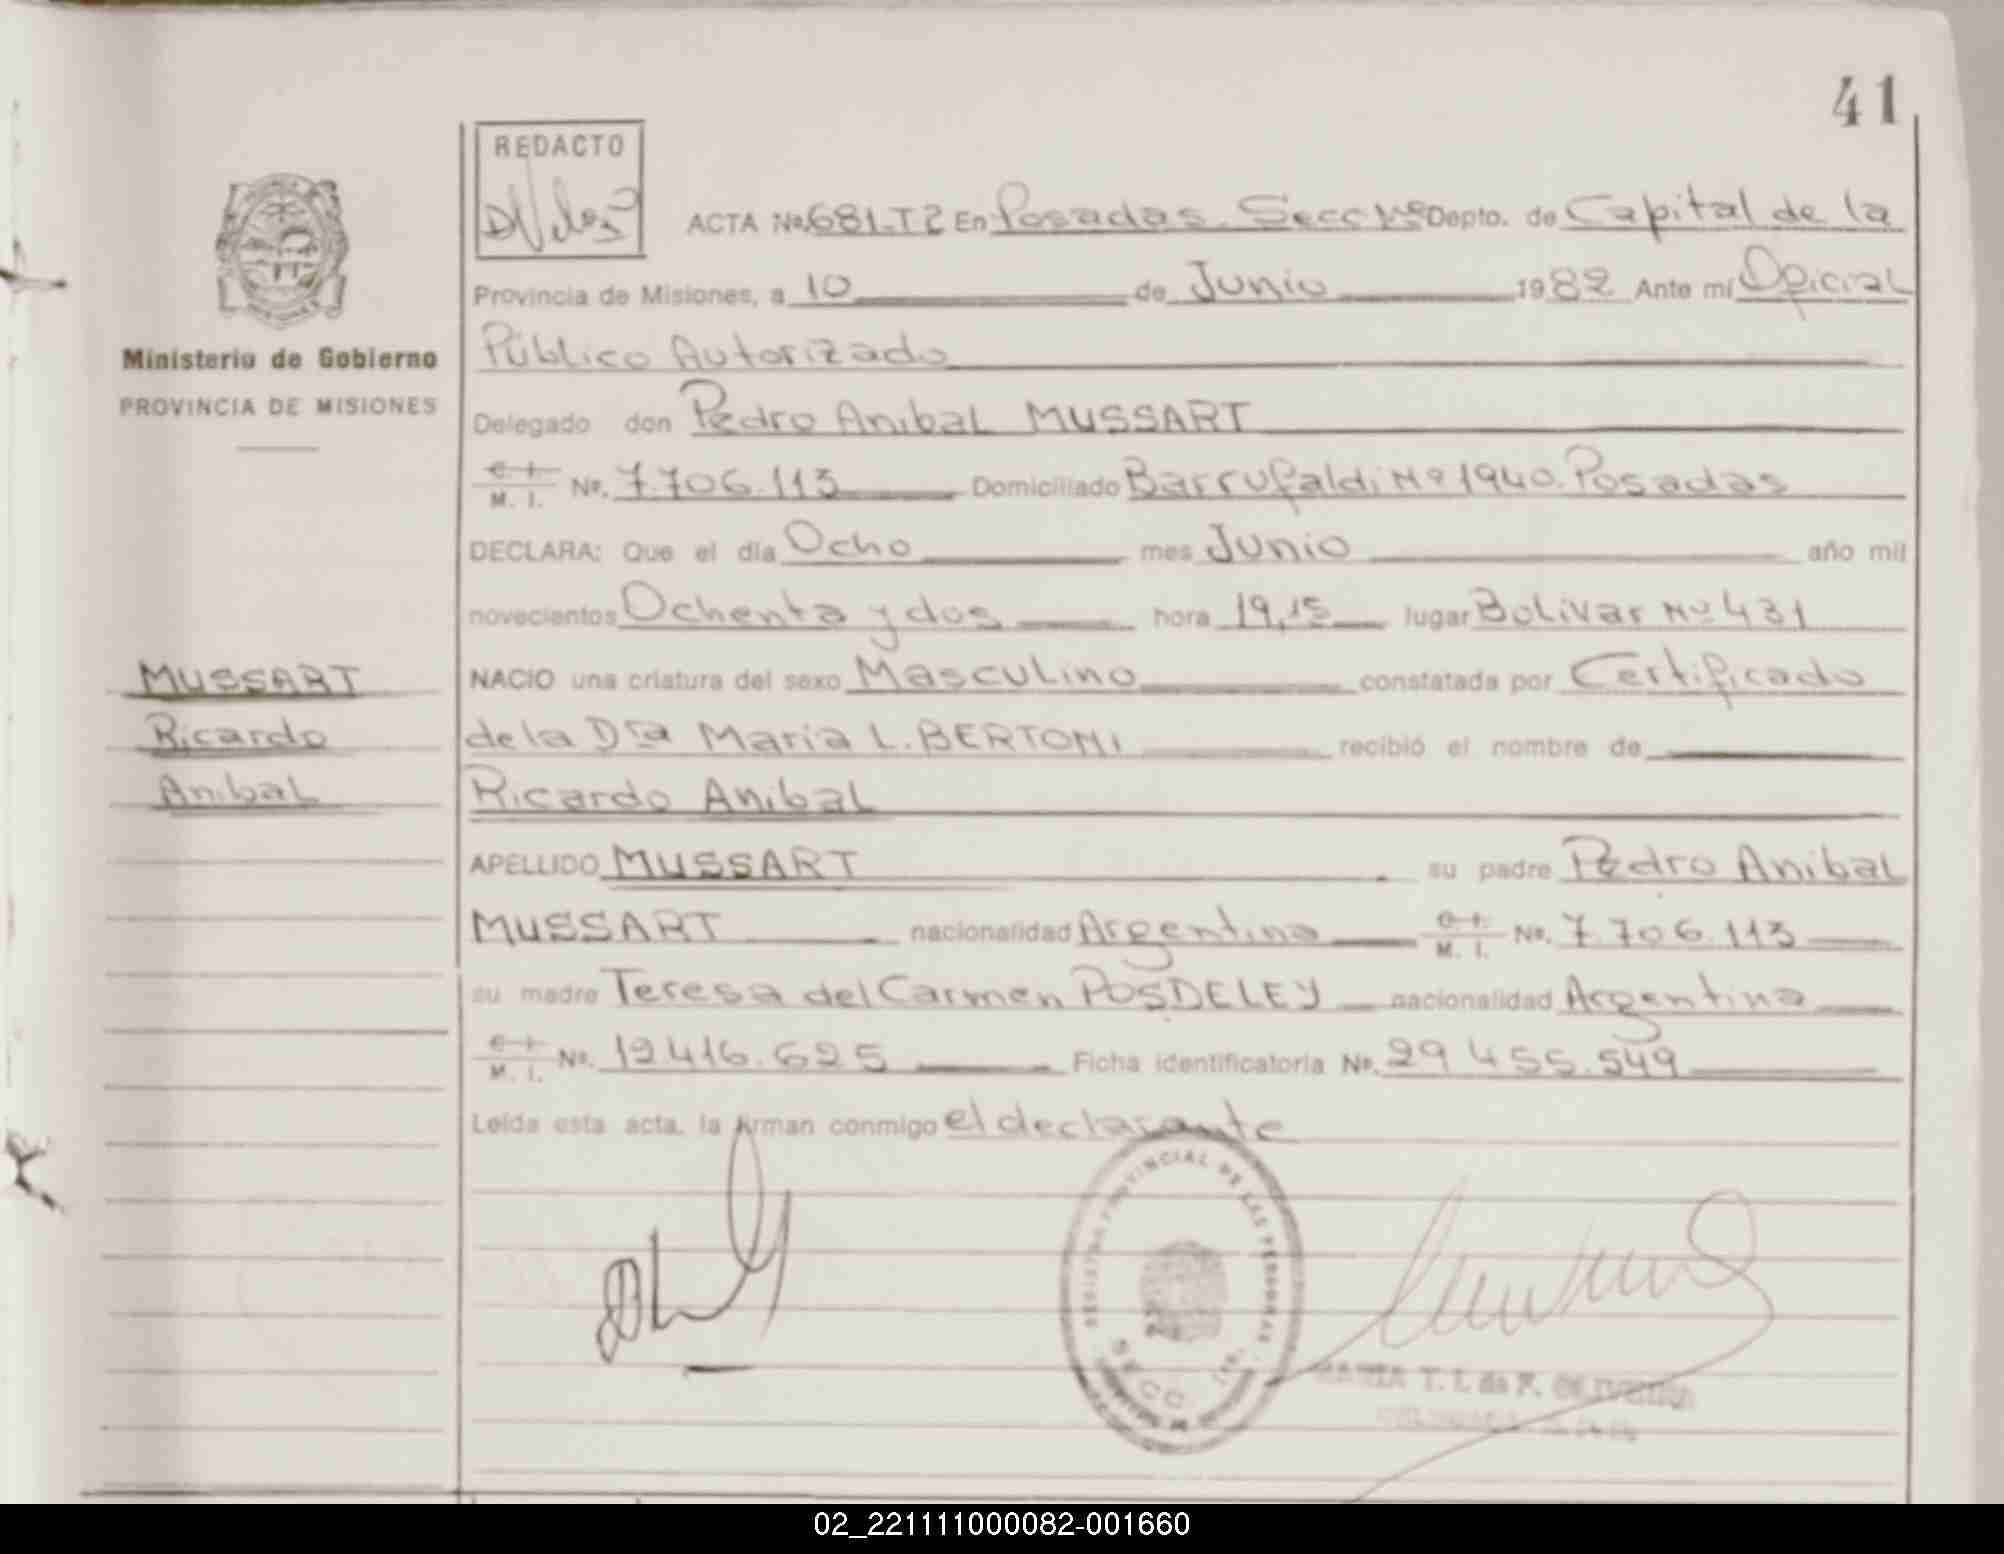 41
REDACTO
ACTA No. 681-T2 En Posadas. Secc 1º Depto. de Capital de la
Provincia de Misiones, a 10 de Junio 1982 Ante mí Oficial
Ministerio de Gobierno
PROVINCIA DE MISIONES
Público Autorizado
Delegado don Pedro Anibal MUSSART
M. I. No. 7.706.113 Domiciliado Barrufaldi Nº 1940. Posadas
DECLARA: Que el día Ocho mes Junio año mil
novecientos Ochenta y dos hora 19,15 lugar Bolivar Nº 431
MUSSART
Ricardo
Anibal
NACIO una criatura del sexo Masculino constatada por Certificado
de la Dra Maria L. BERTONI recibió el nombre de
Ricardo Anibal
APELLIDO MUSSART su padre Pedro Anibal
MUSSART nacionalidad Argentina M. I. No. 7.706.113
su madre Teresa del Carmen POSDELEY nacionalidad Argentina
M. I. No. 12416.625 Ficha identificatoria No. 29 455.549
Leída esta acta, la firman conmigo el declarante
REGISTRO PROVINCIAL DE LAS PERSONAS
SECC. 1ra.
MARIA T. I. de F. OLIVEIRA
02_221111000082-001660